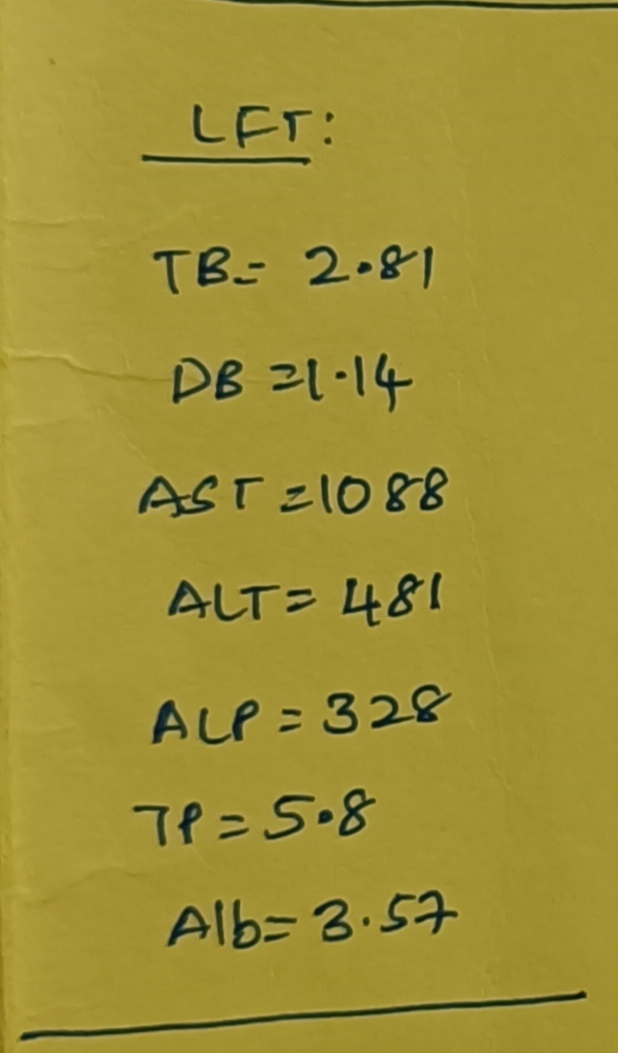 LFT:
TB= 2.81
DB=1.14
AST=1088
ALT= 481
ALP=328
TP=5.8
Alb=3.57